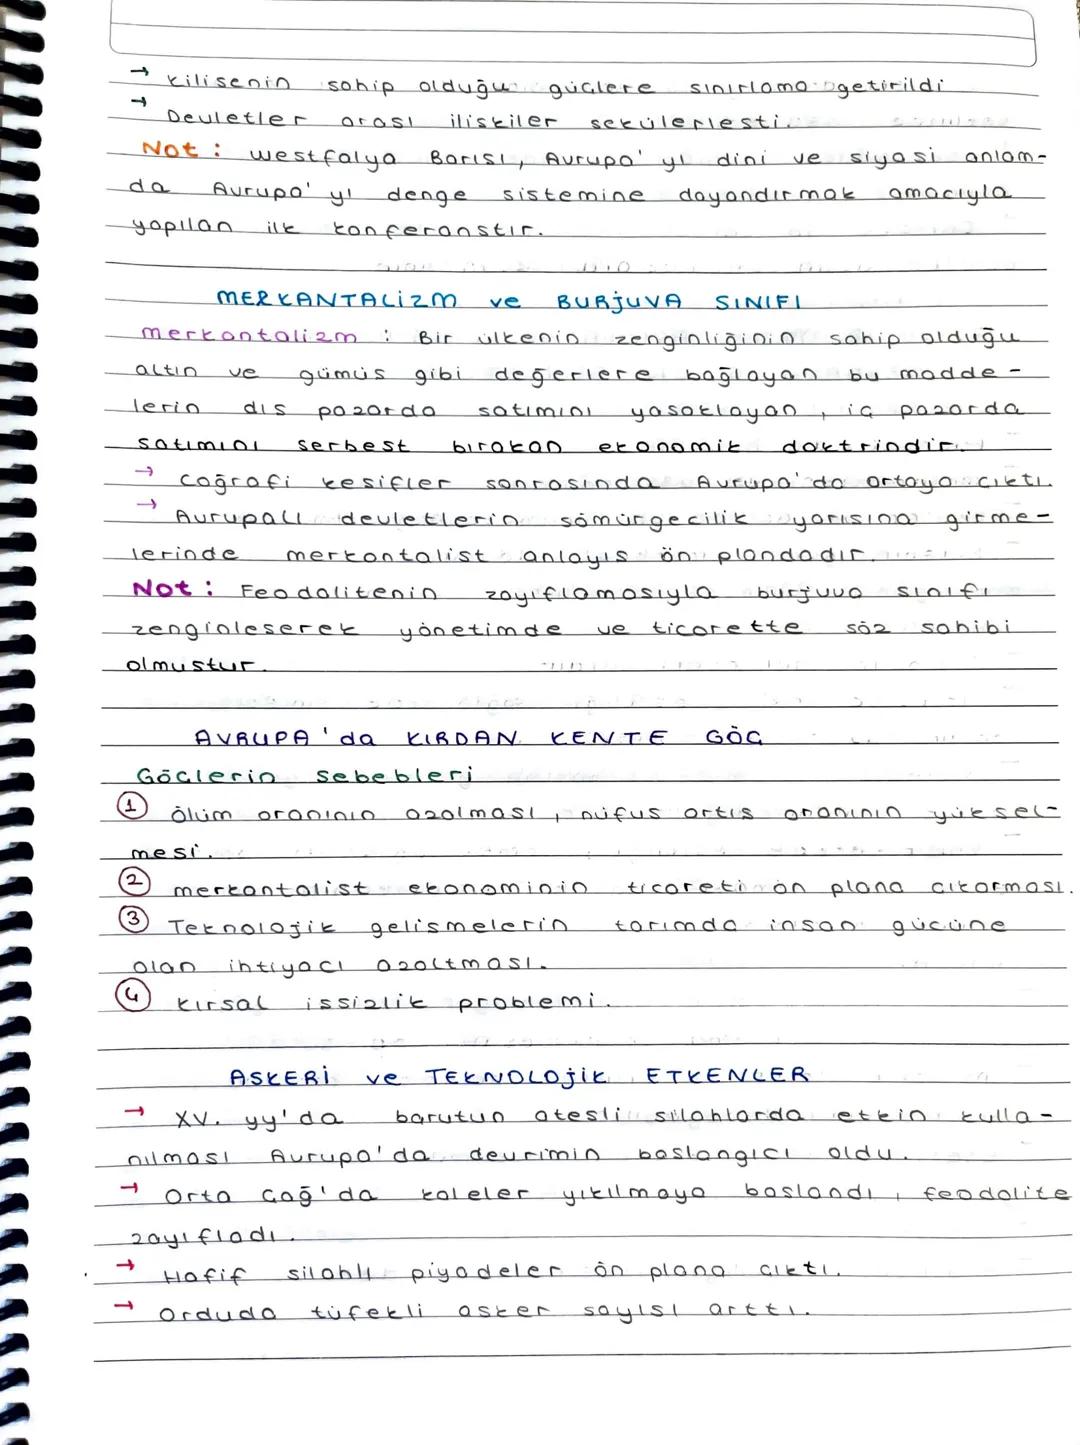 → Kilisenin sahip olduğu güçlere sınırlama getirildi
→ Devletler arası ilişkiler sekülerleşti.
Not : Westfalya Barışı, Avrupa'yı dini ve siyasi anlam-
da Avrupa'yı denge sistemine dayandırmak amacıyla
yapılan ilk konferanstır.
MERKANTALİZM ve BURJUVA SINIFI
Merkantalizm : Bir ülkenin zenginliğinin sahip olduğu
altın ve gümüş gibi değerlere bağlayan bu madde-
lerin dış pazarda satımını yasaklayan, iç pazarda
satımını serbest bırakan ekonomik doktrindir.
→ Coğrafi keşifler sonrasında Avrupa'da ortaya çıktı.
→ Avrupalı devletlerin sömürgecilik yarışına girme-
lerinde merkantalist anlayış ön plandadır.
Not : Feodalitenin zayıflamasıyla burjuva sınıfı
zenginleşerek yönetimde ve ticarette söz sahibi
olmuştur.
AVRUPA'da KIRDAN KENTE GÖÇ
Göçlerin Sebebleri
1 Ölüm oranının azalması, nüfus artış oranının yüksel-
mesi.
2 merkantalist ekonominin ticareti ön plana çıkarması.
3 Teknolojik gelişmelerin tarımda insan gücüne
olan ihtiyacı azaltması.
4 Kırsal işsizlik problemi.
ASKERİ ve TEKNOLOJİK ETKENLER
→ XV. yy'da barutun ateşli silahlarda etkin kulla-
nılması Avrupa'da devrimin başlangıcı oldu.
→ Orta Çağ'da kaleler yıkılmaya başlandı, feodalite
zayıfladı.
→ Hafif silahlı piyadeler ön plana çıktı.
→ Orduda tüfekli asker sayısı arttı.